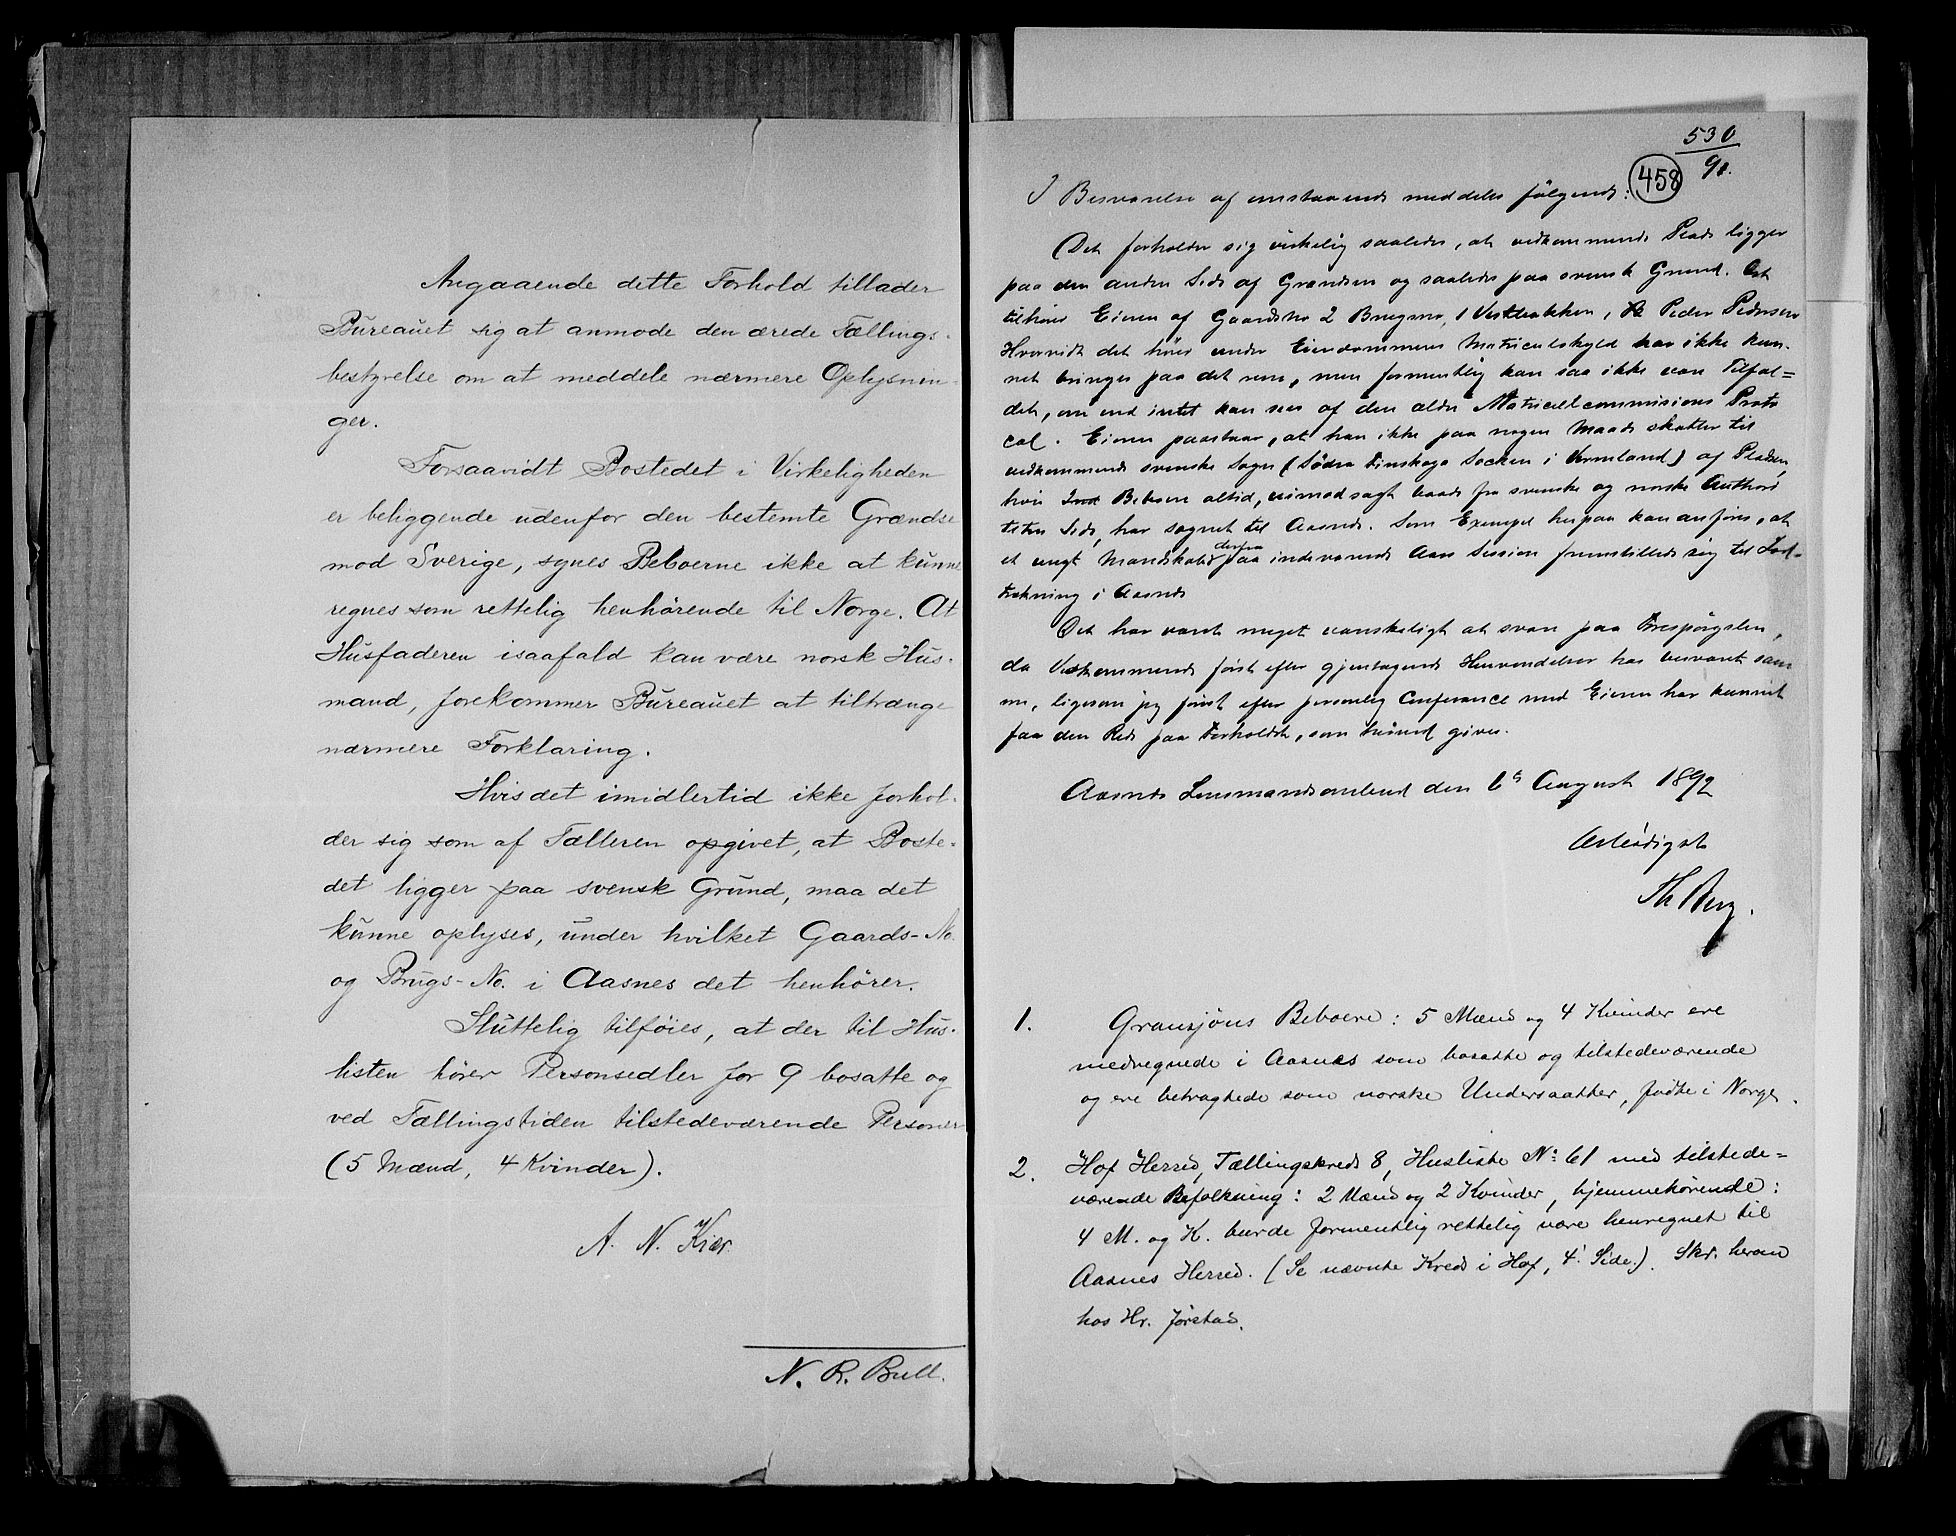 Angaaende dette Forhold tillader
Bureauet sig at anmode den ærede Tællings-
bestyrelse om at meddele nærmere Oplysnin-
ger.
Forsaavidt Bostedet i Virkeligheden
er beliggende udenfor den bestemte Grændse
mod Sverige, synes Beboerne ikke at kunne
regnes som rettelig henhörende til Norge. At
Husfaderen isaafald kan være norsk Hus-
mand, forekommer Bureauet at tiltrænge
nærmere Forklaring.
Hvis det imidlertid ikke forhol-
der sig som af Tælleren opgivet, at Boste-
det ligger paa svensk Grund, maa det
kunne oplyses, under hvilket Gaards-No.
og Brugs-No. i Aasnes det henhörer.
Sluttelig tilföies, at der til Hus-
listen hörer Personsedler for 9 bosatte og
ved Tællingstiden tilstedeværende Personer
(5 Mænd, 4 Kvinder).
A. N. Kiær.
N. R. Bull.
530
91.
458
I Besvarelse af omstaaende meddeles fölgende:
Det forholder sig virkelig saaledes, at vedkommende Plads ligger
paa den anden Side af Grændsen og saaledes paa svensk Grund. Det
tilhörer Eieren af Gaardsno 2 Brugsno, 1 Vestbakken, Peder Pedersen
Hvorvidt det hörer under Eiendommens Matriculskyld har ikke kun-
net bringes paa det rene, men formentlig kan saa ikke være Tilfæl=
det, om end intet kan sees af den ældre Matriculcommisions Proto
col. Eieren paastaar, at han ikke paa nogen Maade skatter til
vedkommende svenske Sogn (Södra Finskoga Socken i Vermland) af Pladsen
hvis Beboere altid, uimodsagt baade fra svenske og norske Authori
teters Side, har sognet til Aasnes. Som Exempel herpaa kan anföres, at
et ungt Mandskab derfra paa indeværende Aars Session fremstillede sig til Lod-
trækning i Aasnes
Det har været meget vanskeligt at svare paa Forespörgslen,
da Vedkommende först efter gjentagende Henvendelser har besvaret sam
me, ligesom jeg först efter personlig Conferance med Eieren har kunnet
faa den Rede paa Forholdet, som herved gives.
Aasnes Lensmandsombud den 6te August 1892
Ærbödigst
Th Berg.
1. Gransjöns Beboere: 5 Mænd og 4 Kvinder ere
medregnede i Aasnes som bosatte og tilstedeværende
og ere betragtede som norske Undersaatter, födte i Norge.
2. Hof Herred, Tællingskreds 8, Husliste No 61 med tilstede=
værende Befolkning: 2 Mænd og 2 Kvinder, hjemmehörende:
4 M. og K. burde formentlig rettelig være henregnet til
Aasnes Herred. (Se nævnte Kreds i Hof, 4. Side.). Skr. herom
hos Hr. Jörstad.